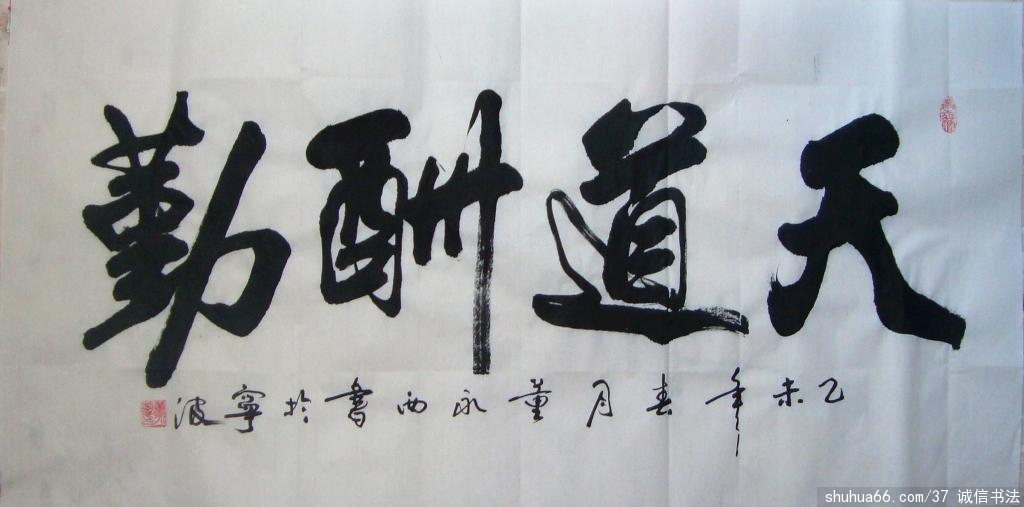 天道酬勤
乙未年春月董永西書於寧波
shuhua66.com/37 诚信书法